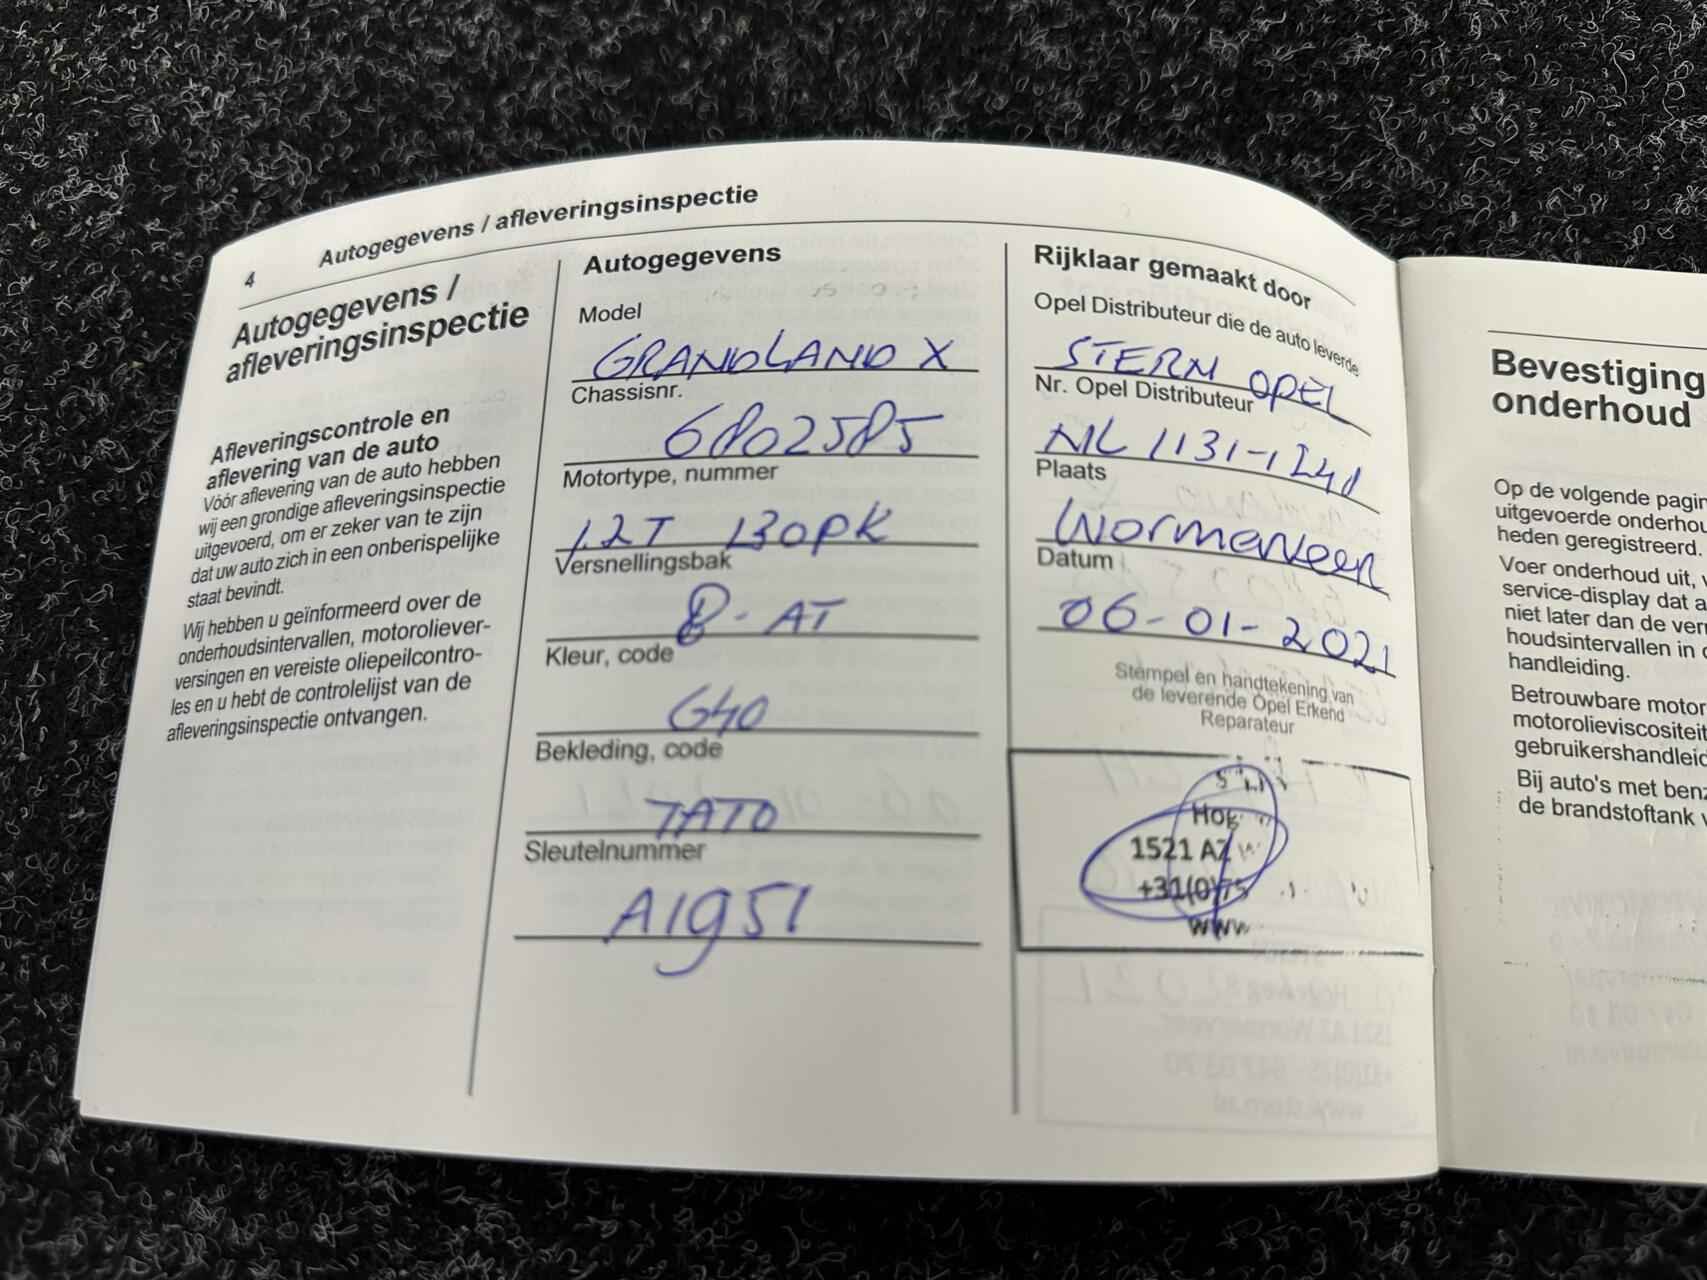 4
Autogegevens / afleveringsinspectie
Autogegevens /
afleveringsinspectie
Afleveringscontrole en
aflevering van de auto
Vóór aflevering van de auto hebben
wij een grondige afleveringsinspectie
uitgevoerd, om er zeker van te zijn
dat uw auto zich in een onberispelijke
staat bevindt.
Wij hebben u geïnformeerd over de
onderhoudsintervallen, motoroliever-
versingen en vereiste oliepeilcontro-
les en u hebt de controlelijst van de
afleveringsinspectie ontvangen.
Autogegevens
Model
GRANDLAND X
Chassisnr.
6802585
Motortype, nummer
1.2T 130PK
Versnellingsbak
8-AT
Kleur, code
G40
Bekleding, code
TATO
Sleutelnummer
A1951
Rijklaar gemaakt door
Opel Distributeur die de auto leverde
STERN OPEL
Nr. Opel Distributeur
NL 1131-1241
Plaats
Wormerveer
Datum
06-01-2021
Stempel en handtekening van
de leverende Opel Erkend
Reparateur
1521 AZ
+31(0)75
www
Bevestiging
onderhoud
Op de volgende
uitgevoerde
heden geregistreerd.
Voer onderhoud uit,
service-display dat
niet later dan de
houdsintervallen in
handleiding.
Betrouwbare
motorolieviscositeit
Bij auto's met
de brandstoftank